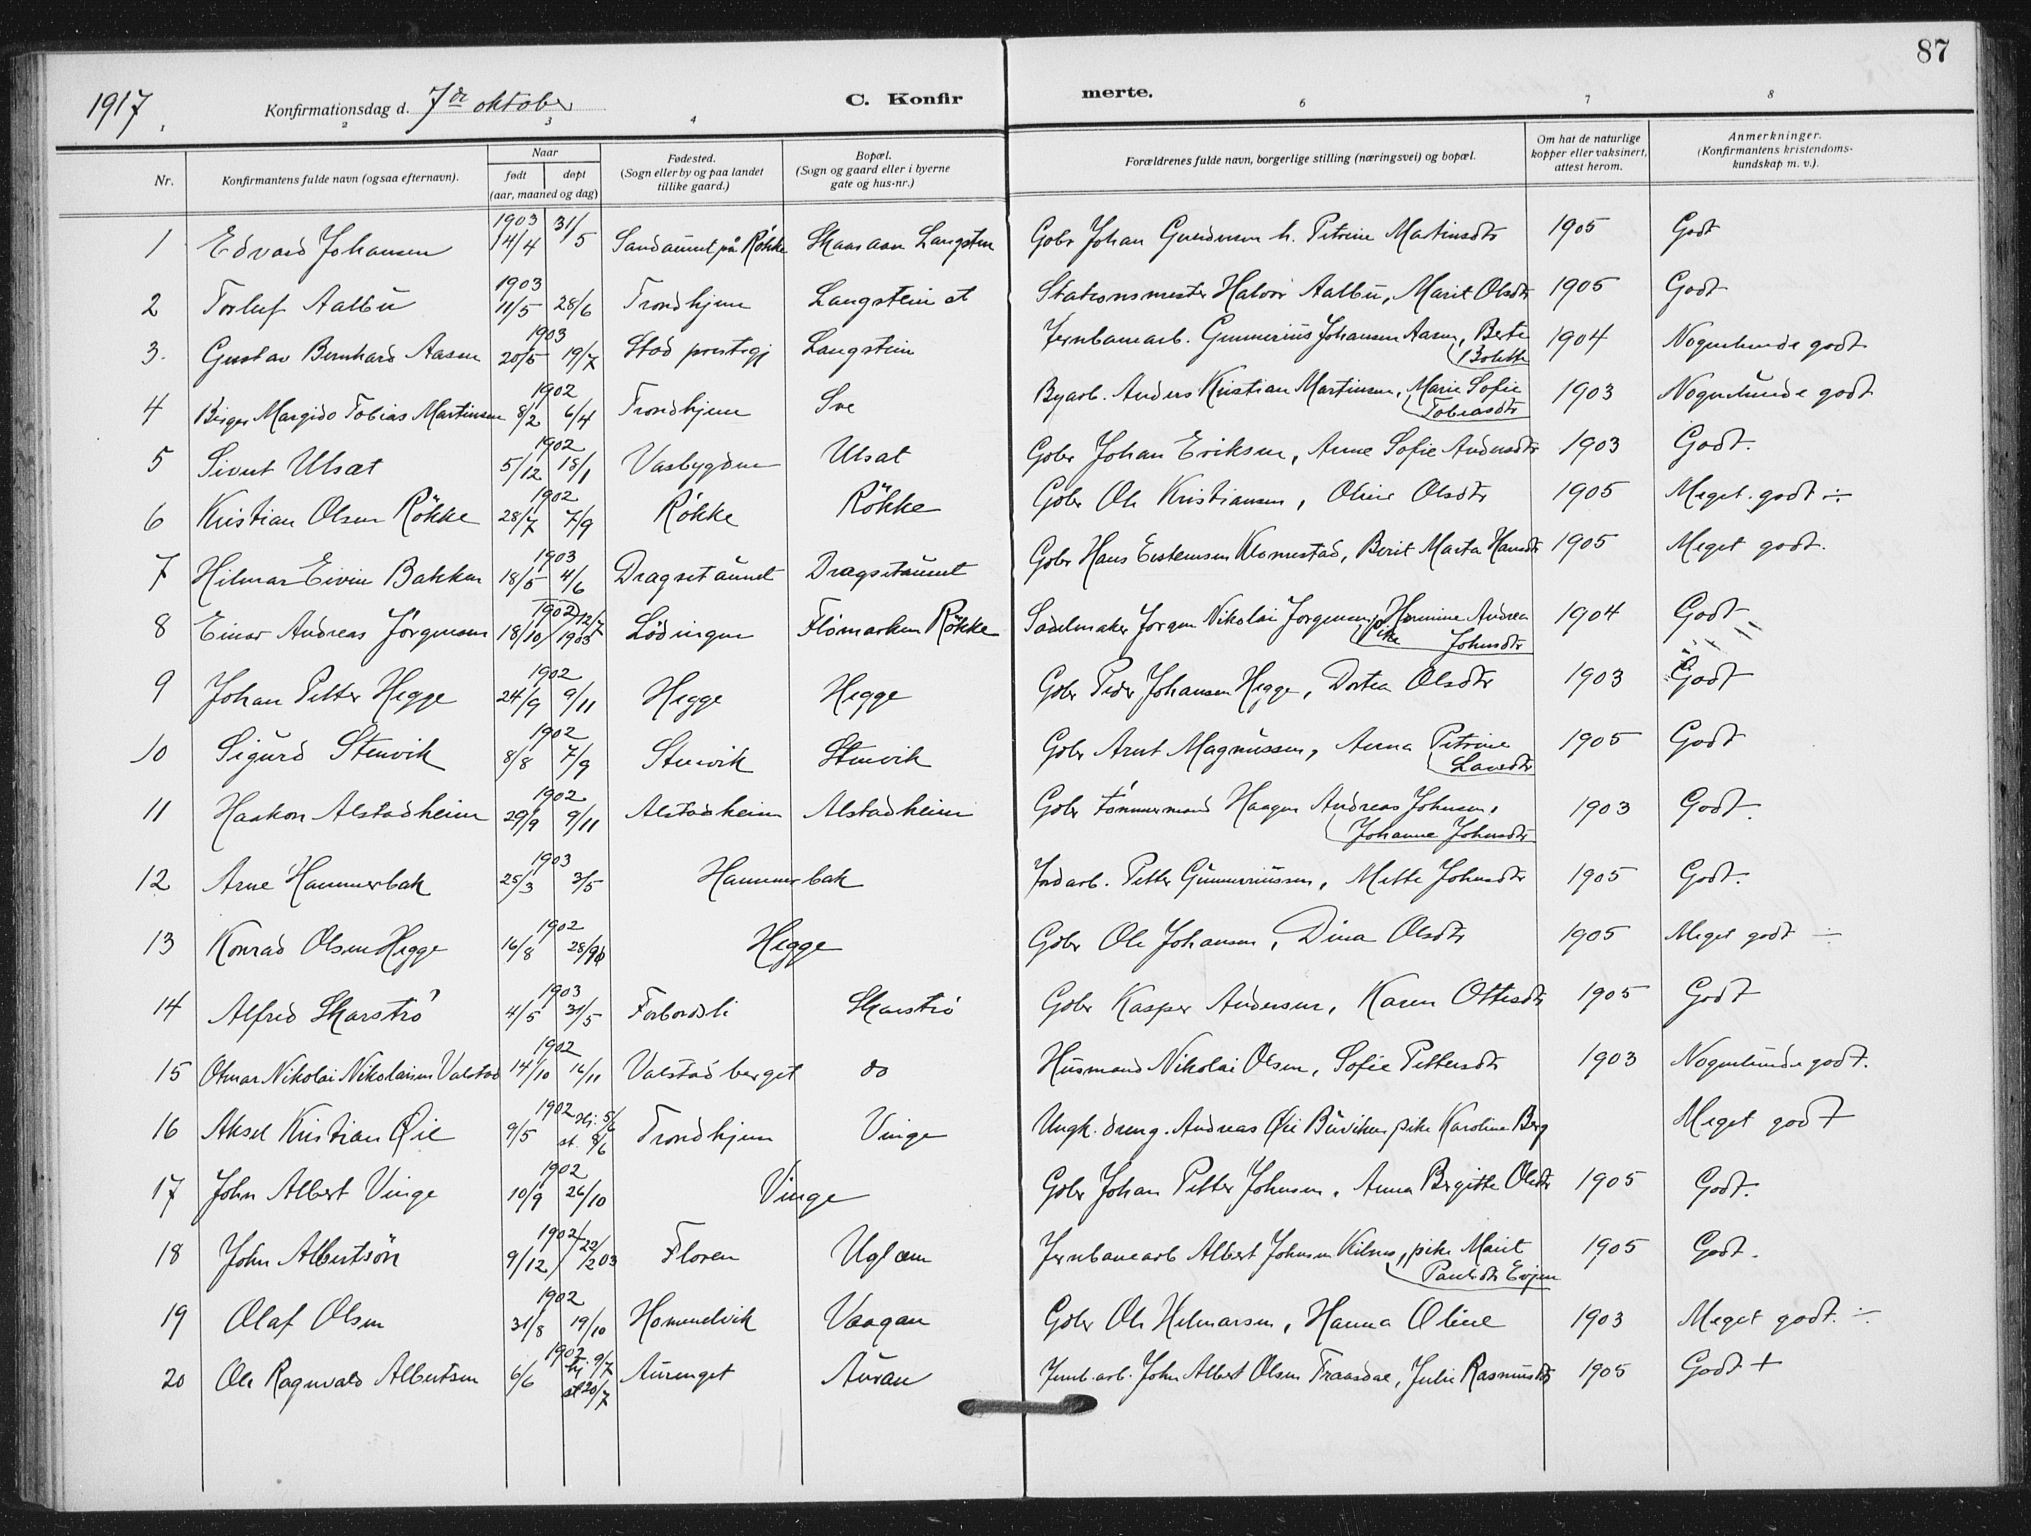 87
1917
Konfirmationsdag d. 7de oktober
C. Konfirmerte.
1 2 3 4 6 7 8
Nr. | Konfirmantens fulde navn (ogsaa efternavn). | Naar født | døpt (aar, maaned og dag) | Fødested. (Sogn eller by og paa landet tillike gaard.) | Bopæl. (Sogn og gaard eller i byerne gate og hus-nr.) | Forældrenes fulde navn, borgerlige stilling (næringsvei) og bopæl. | Om hat de naturlige kopper eller vaksinert, attest herom. | Anmerkninger. (Konfirmantens kristendoms-kundskap m. v.).
1 Edvard Johansen 1903 14/4 31/5 Sandaunet på Røkke Langsten Gbr Johan h. Petrine Martinsdtr 1905 Godt
2 Torleif Aalbu 1903 11/5 28/6 Trondhjem Langstein st Stationsmester Halvor Aalbu, Marit Olsdtr 1905 Godt
3. Gustav Bernhard Aasen 1903 20/5 19/7 Stod prestegj Langstein Jernbanearb. Gunnerius Johansen Aasen, Berte Bolette 1904 Nogenlunde godt
4 Birger Margido Tobias Martinsen 1902 8/2 6/4 Trondhjem Sve Byarb. Anders Kristian Martinsen, Marie Sofie Tobiasdtr 1903 Nogenlunde godt
5 Sivert Ulsæt 1902 5/12 18/1 Vasbygden Ulsæt Gbr Johan Eriksen, Anne Sofie Andersdtr 1903 Godt.
6 Kristian Olsen Røkke 1902 28/7 7/9 Røkke Røkke Gbr Ole Kristiansen, Oline Olsdtr 1905 Meget godt ÷
7 Hilmar Eivin Bakken 1903 18/5 4/6 Dragsetaunet Dragsetaunet Gbr Hans Eistensen, Berit Marta Hansdtr 1905 Meget godt.
8 Einar Andreas Jørgensen 1902 18/10 12/7 1903 Lødingen Flomarken Røkke Sadelmaker Jørgen Nikolai Jørgensen, pike Hermine Andrea Johnsdtr 1904 Godt
9 Johan Petter Hegge 1902 24/9 9/11 Hegge Hegge Gbr Peder Johansen Hegge, Dortea Olsdtr 1903 Godt
10 Sigurd Stenvik 1902 8/8 7/9 Stenvik Stenvik Gbr Arnt Magnussen, Anna Petrine Larsdtr 1905 Godt
11 Haakon Alstadheim 1902 29/9 9/11 Alstadheim Alstadheim Gbr tømmermand Haagen Andreas Johnsen, Johanne Johnsdtr 1903 Godt.
12 Arne Hammerbak 1903 25/3 3/5 Hammerbak Jordarb. Petter Gunneriussen, Mette Johnsdtr 1905 Godt.
13 Konrad Olsen Hegge 1902 16/8 28/9 Hegge Gbr Ole Johansen, Dina Olsdtr 1905 Meget godt ÷
14 Alfred Skarstrø 1903 4/5 31/5 Forbordsli Skarstrø Gbr Kasper Andersen, Karen Ottesdtr 1905 Godt
15 Otmar Nikolai Nikolaisen Valstad 1902 14/10 16/11 Valstadberget do Husmand Nikolai Olsen, Sofie Pettersdtr 1903 Nogenlunde godt.
16 Aksel Kristian Øie 1902 9/5 Hj. 5/6 st. 8/6 Trondhjem Vinge Ungk. dreng. Andreas Øie Buviken pike Karoline Berg Meget godt
17 John Albert Vinge 1902 10/9 26/10 Vinge Gbr Johan Petter Johnsen, Anna Bergitte Olsdtr 1905 Godt.
18 John Albertsøn 1902 9/12 22/2 03 Floren Uglem Jernbanearb Albert Johnsen Kilnes, pike Marit Paulsdtr Evjen 1905 Godt.
19 Olaf Olsen 1902 31/8 19/10 Hommelvik Vaagan Gbr Ole Helmarsen, Hanna Oline 1903 Meget godt. ÷
20 Ole Ragnvald Albertsen 1902 6/6 hj. 9/7 st 20/7 Aurenget Auran Jernb.arb. John Albert Olsen Fraasdae, Julie Rasmusdtr 1905 Godt +